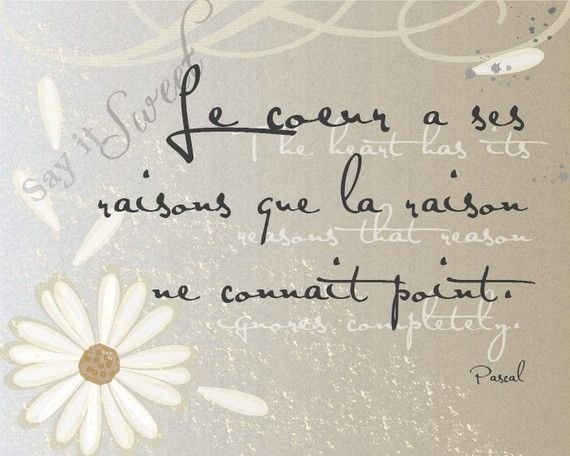 Say it Sweet
Le coeur a ses
The heart has its
raisons que la raison
reasons that reason
ne connaît point.
ignores completely.
Pascal